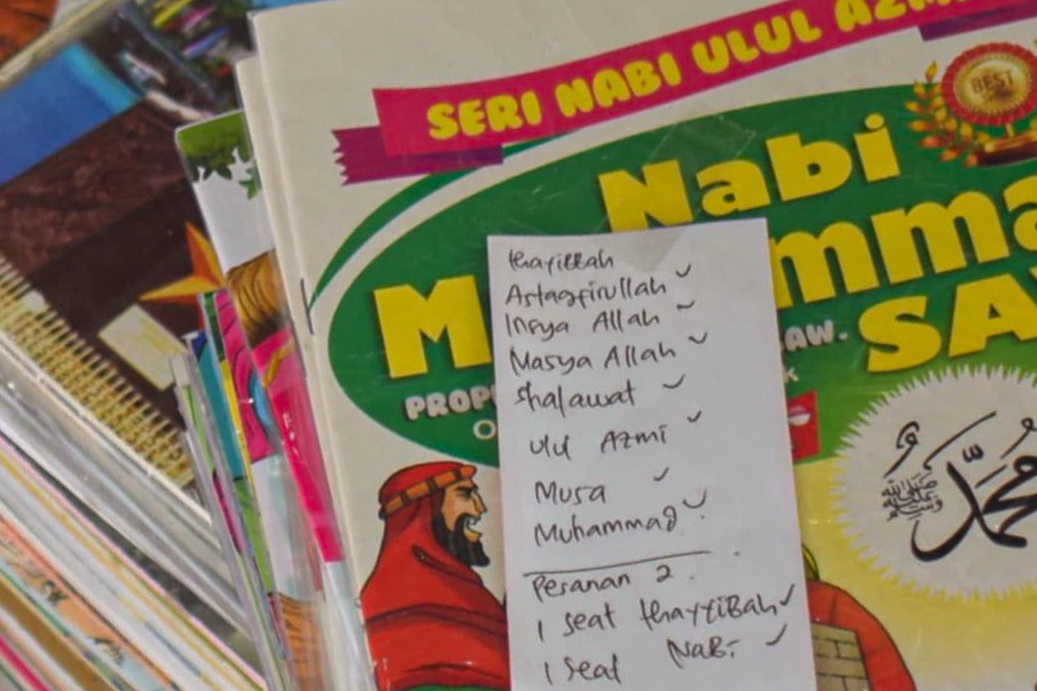 SERI NABI ULUL AZMI
BEST
Nabi
M mma
SAW.
SA
PROP
K
thayibbah
Astagfirullah ✓
Insya Allah ✓
Masya Allah ✓
Shalawat ✓
Ulul Azmi ✓
Musa ✓
Muhammad ✓
Pesanan 2.
1 seat thayyibah ✓
1 seat Nabi ✓
محمد
صلى الله عليه وسلم